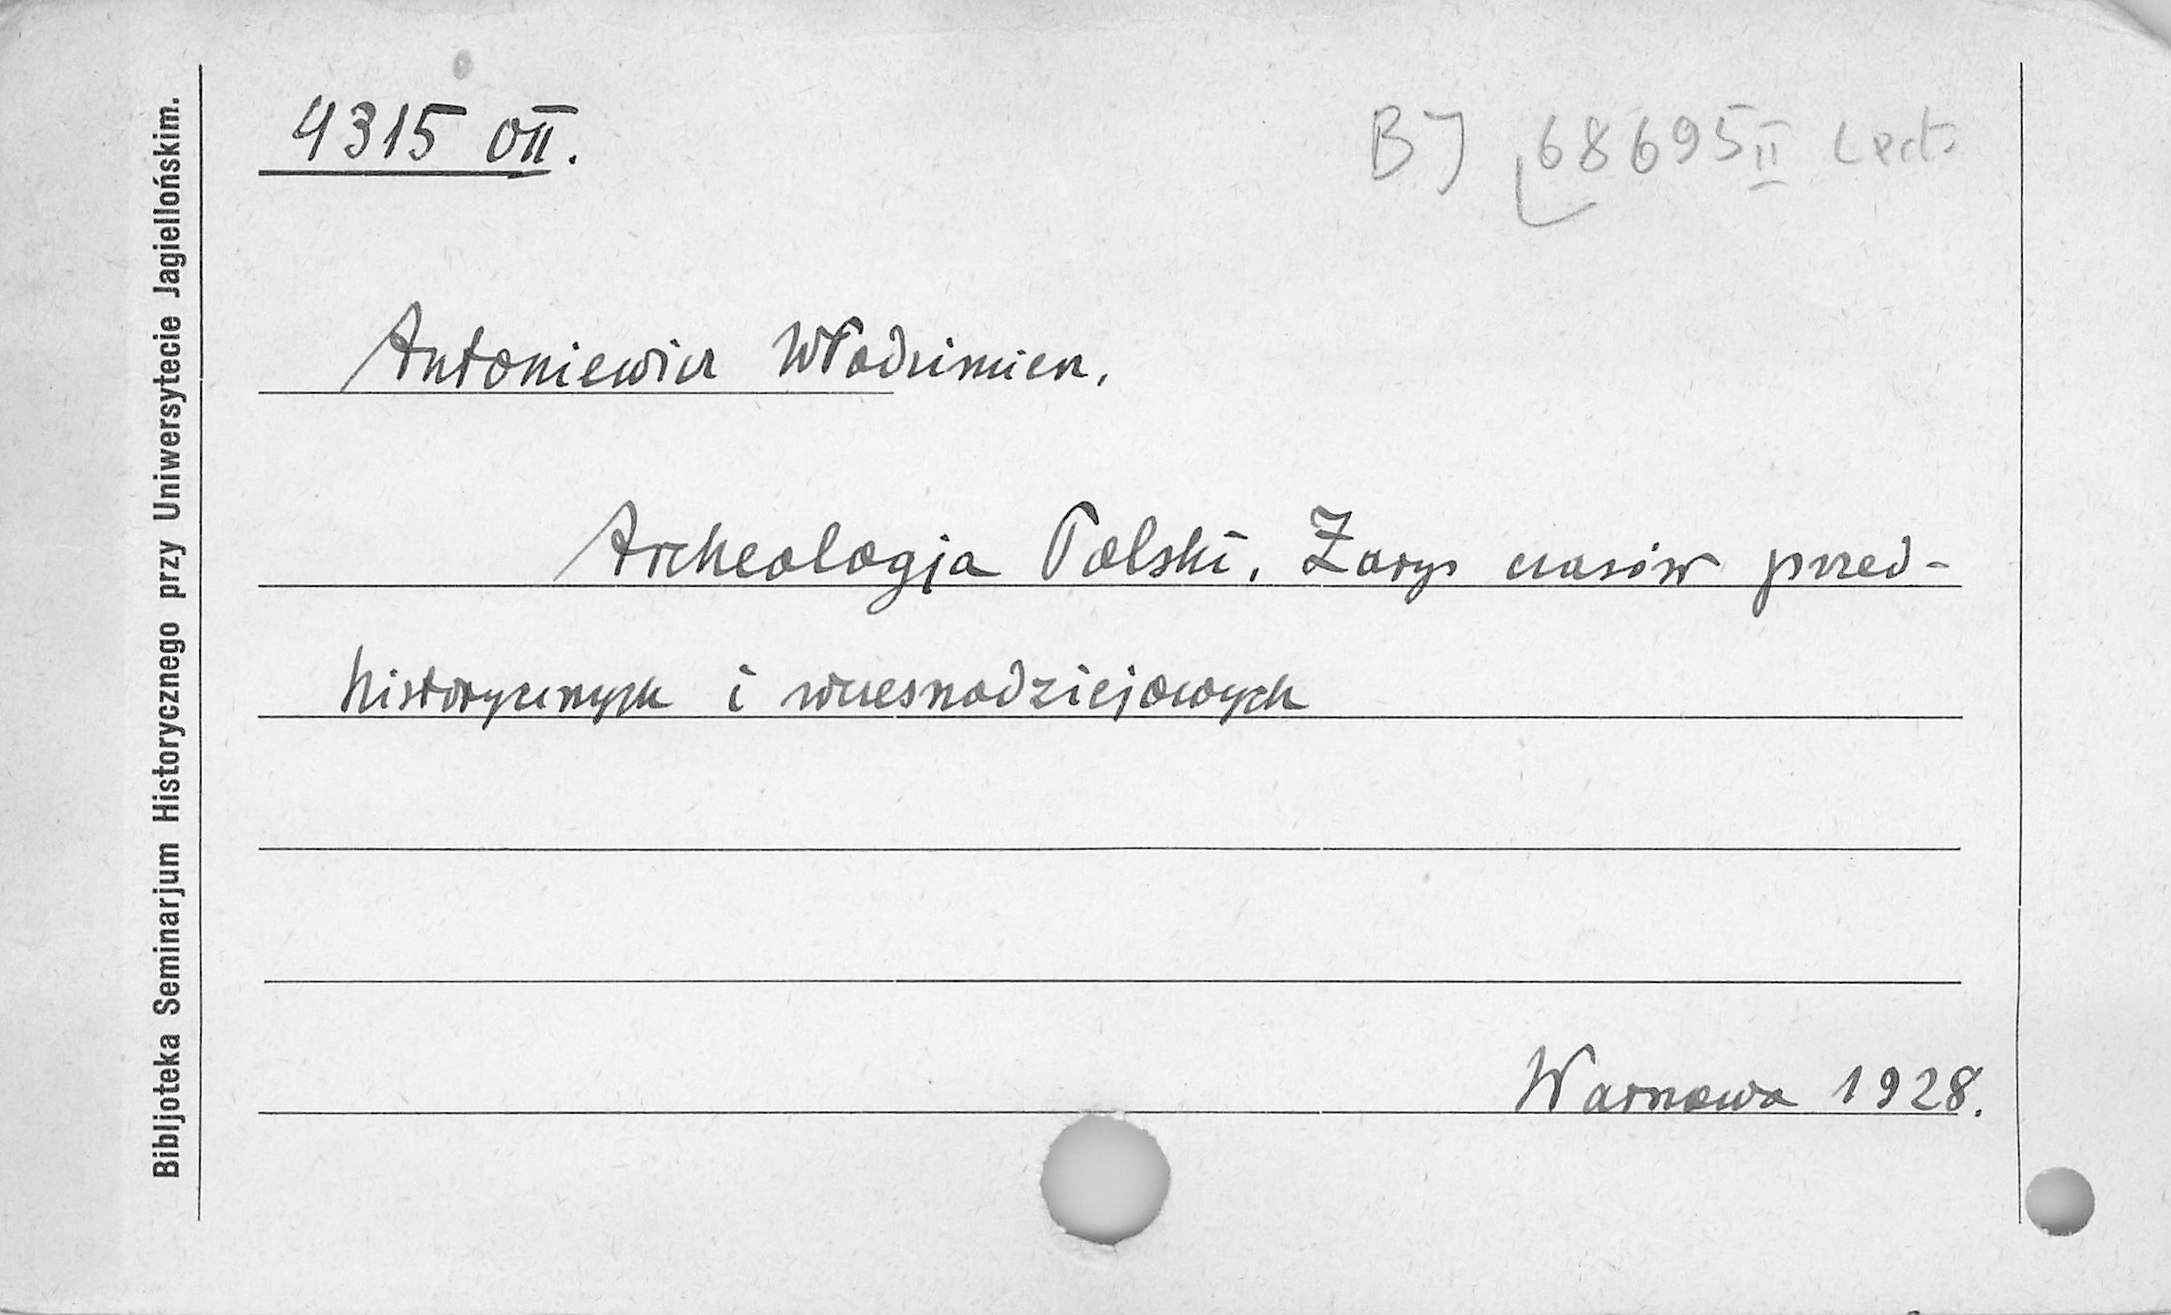 Bibljoteka Seminarjum Historycznego przy Uniwersytecie Jagiellońskim.
4315 OII.
BJ 68695 II Lect.
Antoniewicz Włodzimierz.
Archeologja Polski. Zarys czasów przed-
historycznych i wczesnodziejowych
Warszawa 1928.